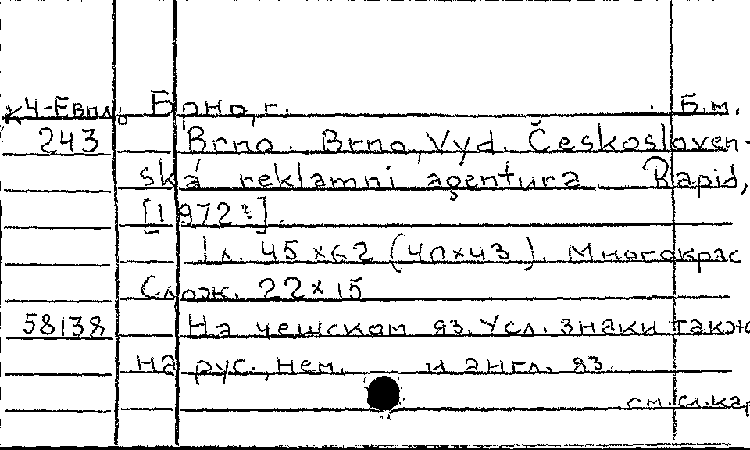 К4-Евпл. Брно, г. Б.м.
243 Brno. Brno, Vyd. Českosloven-
ská reklamni agentura Rapid,
[1972?].
1 л. 45×62 (40×43). Многокрас
Слож. 22×15
58138 На чешском яз. Усл. знаки такж
на рус., нем. и англ. яз.
см. сл. кар